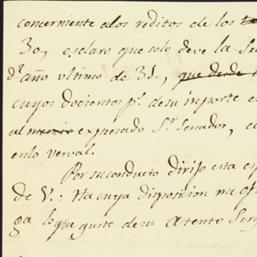 concerniente alos reditos de los
30, esclaro que solo deve la
d.° año ultimo de 31, que desde
cuyos docientos p.s desu importe
al expresado S.or Senador,
enlo verval.
Por su conducto dirijo esta
de V.: Ha cuya disposicion me
lo que guste de su Atento